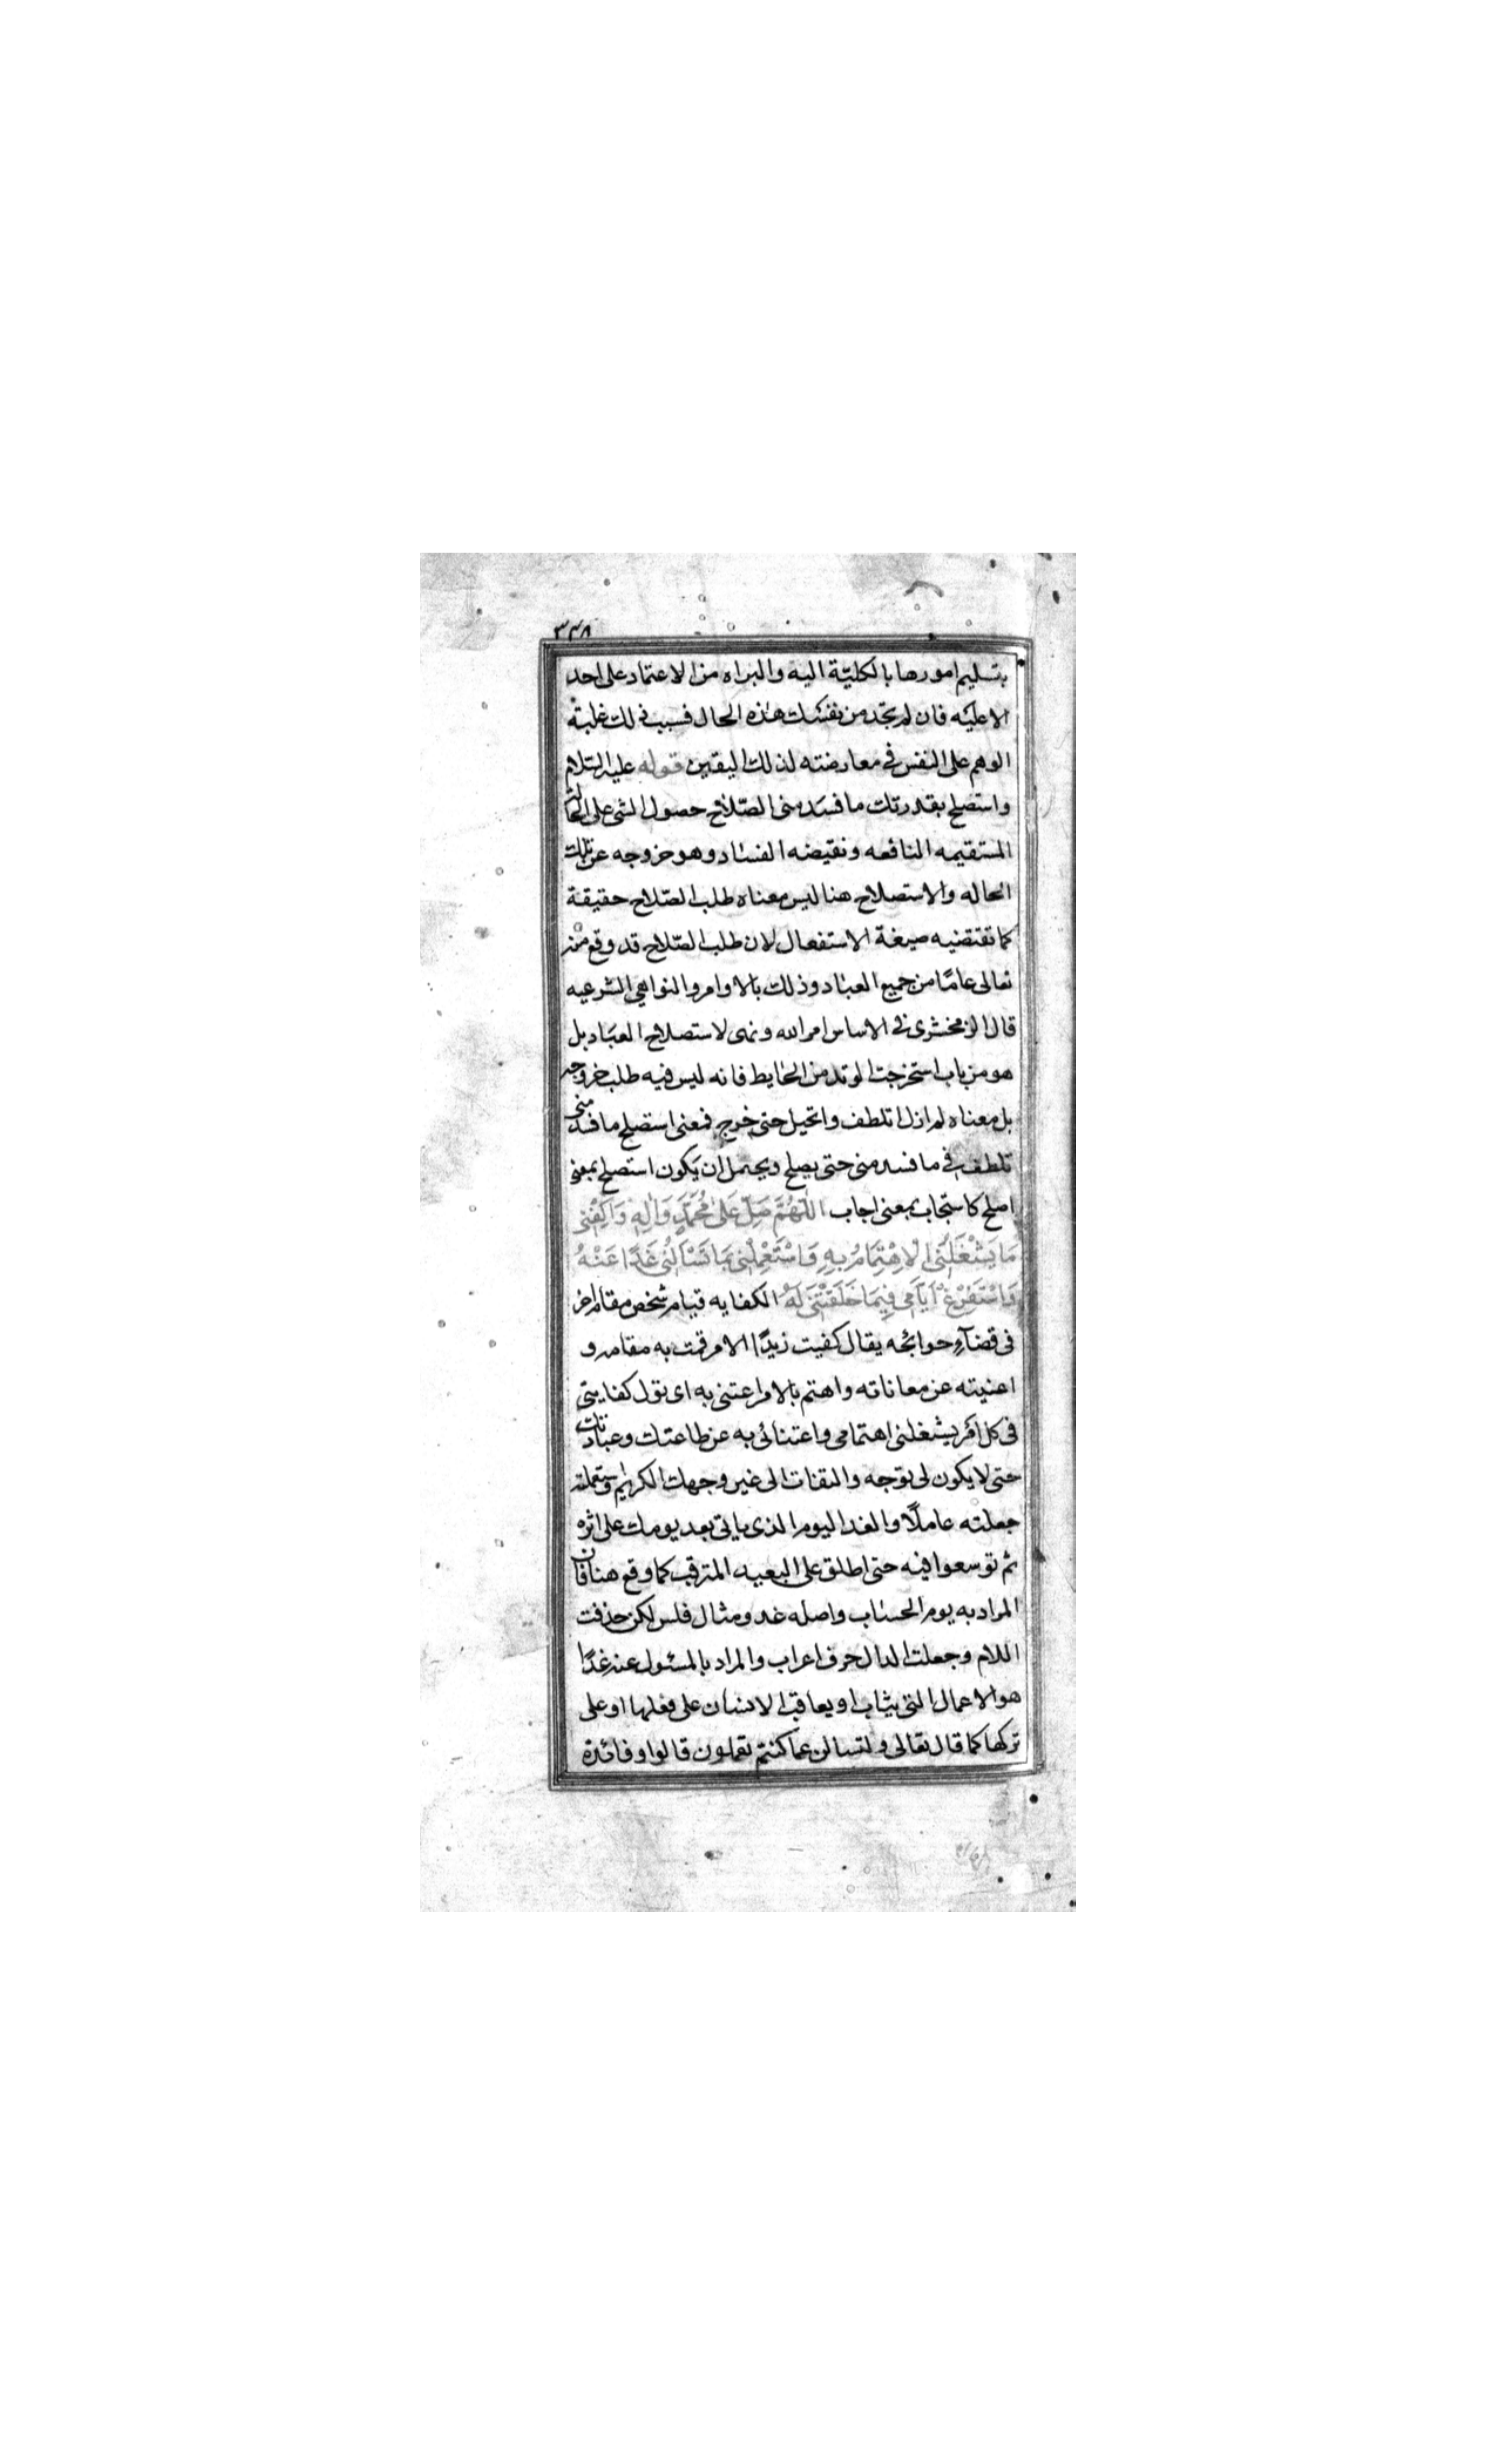 ٣٤٨
بتسليم امورها بالكليّة اليه والبراه من الاعتماد على احد
الا عليه فان لم تجد من نفسك هذه الحال فسبب ذلك غلبة
الوهم على النفس في معارضته لذلك اليقين قوله عليه السّلام
واستصلح بقدرتك ما فسد منى الصّلاح حصول الشى على الحالة
المستقيمه النافعه ونقيضه الفساد وهو خروجه عن تلك
الحاله والاستصلاح هنا ليس معناه طلب الصّلاح حقيقة
كما تقتضيه صيغة الاستفعال لان طلب الصّلاح قد وقع منه
تعالى عامّا من جميع العباد وذلك بالاوامر والنواهى الشرعيه
قال الزمخشرى فى الاساس امر الله ونهى لاستصلاح العباد بل
هو من باب استخرجت الوتد من الحايط فانه ليس فيه طلب خروجه
بل معناه لم ازل اتلطف واتحيل حتى خرج فمعنى استصلح ما فسد منى
تلطف في ما فسد منى حتى يصلح ويحتمل ان يكون استصلح بمعنى
اصلح كاستجاب بمعنى اجاب اللّٰهُمَّ صَلِّ عَلىٰ مُحَمَّدٍ وَاٰلِهِ وَاكْفِنِى
مَا يَشْغَلُنِى الْاِهْتِمَامُ بِهِ وَاسْتَعْمِلْنِى بِمَا تَسْاَلُنِى غَدًا عَنْهُ
وَاسْتَفْرِغْ اَيَّامِى فِيمَا خَلَقْتَنِى لَهُ الكفايه قيام شخص مقام اخر
فى قضآءِ حوائجه يقال كفيت زيدًا الامر قمت به مقامه و
اغنيته عن معاناته واهتم بالامر اعتنى به اى تول كفايتى
فى كل امر يشغلنى اهتمامى واعتنائى به عن طاعتك وعبادتك
حتى لا يكون لى توجه والتفات الى غير وجهك الكريم واستعملته
جعلته عاملًا والغد اليوم الذى ياتى بعد يومك على اثره
ثم توسعوا فيه حتى اطلق على البعيد المترقب كما وقع هنا فان
المراد به يوم الحساب واصله غدو مثال فلس لكن حذفت
اللام وجعلت الدال حرف اعراب والمراد بالمسئول عنه غدًا
هو الاعمال التى يثاب او يعاقب الانسان على فعلها او على
تركها كما قال تعالى ولتسالن عما كنتم تعملون قالوا وفائدة